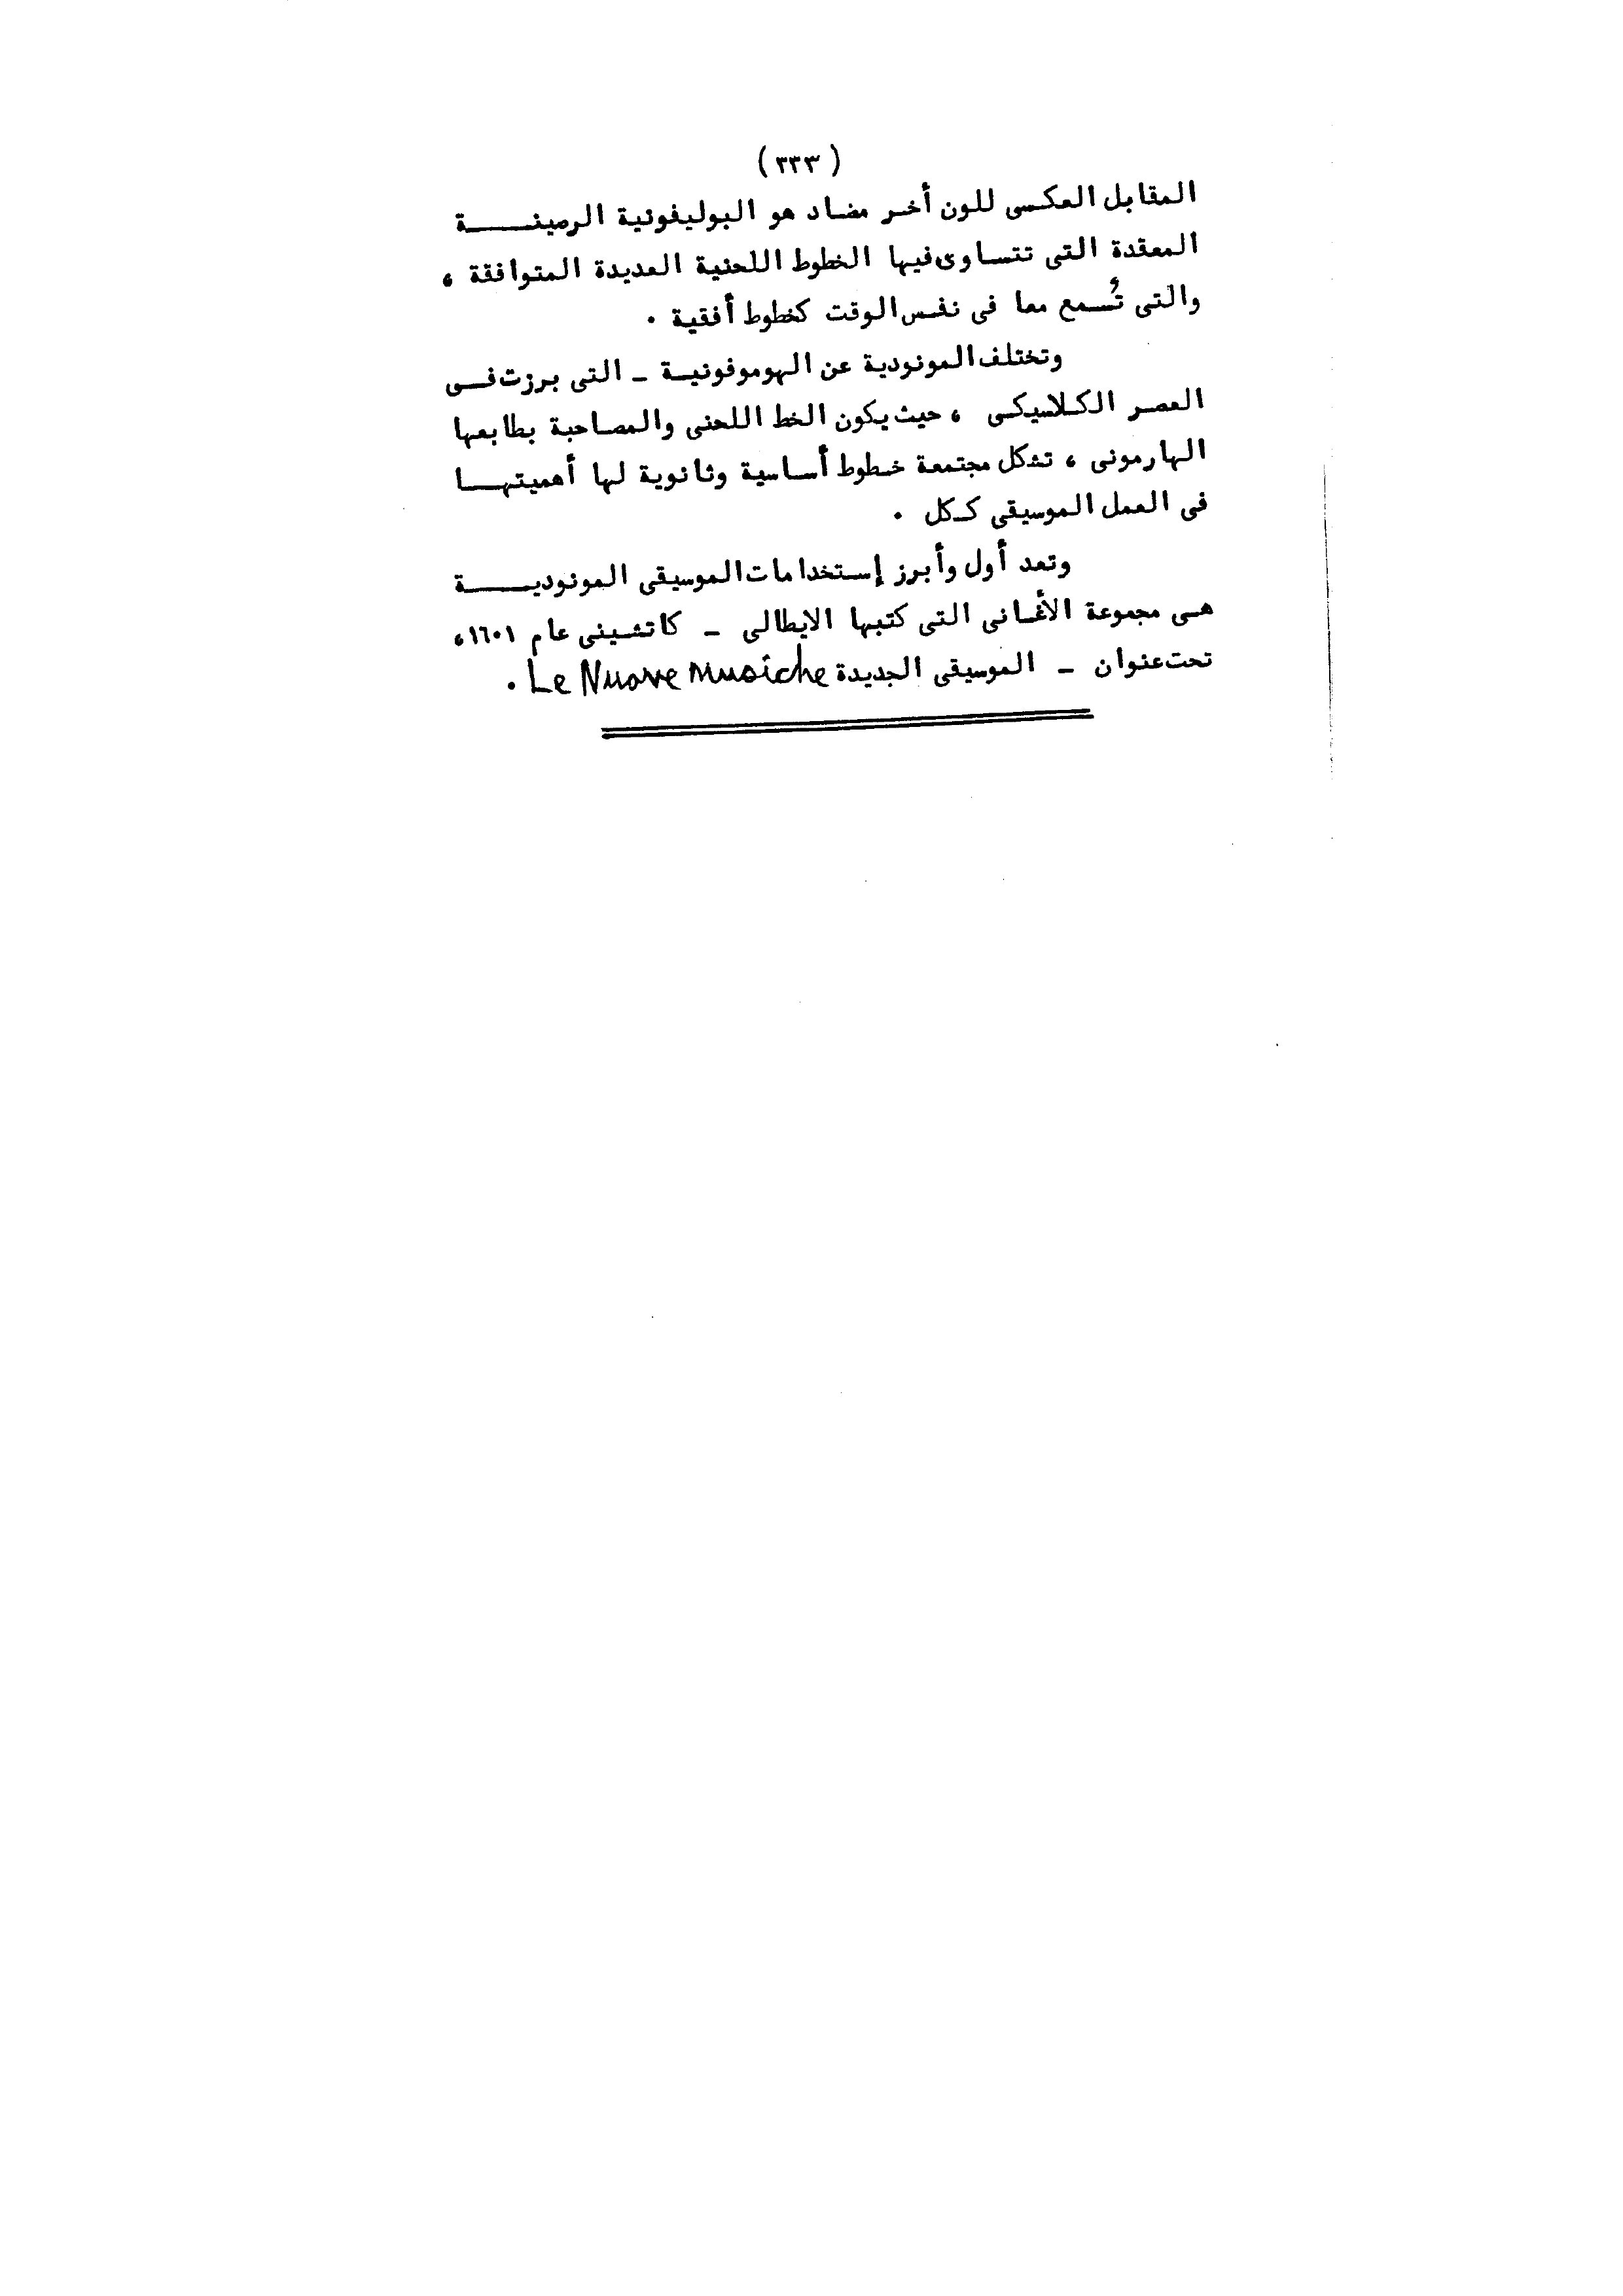 ( ٣٣٣ )
المقابل العكسى للون أخر مضاد هو البوليفونية الرصينة
المعقدة التى تتساوى فيها الخطوط اللحنية العديدة المتوافقة ،
والتى تُسمع معا فى نفس الوقت كخطوط أفقية .
وتختلف المونودية عن الهوموفونية - التى برزت فى
العصر الكلاسيكى ، حيث يكون الخط اللحنى والمصاحبة بطابعها
الهارمونى ، تشكل مجتمعة خطوط أساسية وثانوية لها أهميتها
فى العمل الموسيقى ككل .
وتعد أول وأبرز إستخدامات الموسيقى المونودية
هى مجموعة الأغانى التى كتبها الايطالى - كاتشينى عام ١٦٠١،
تحت عنوان - الموسيقى الجديدة Le Nuove Musiche .